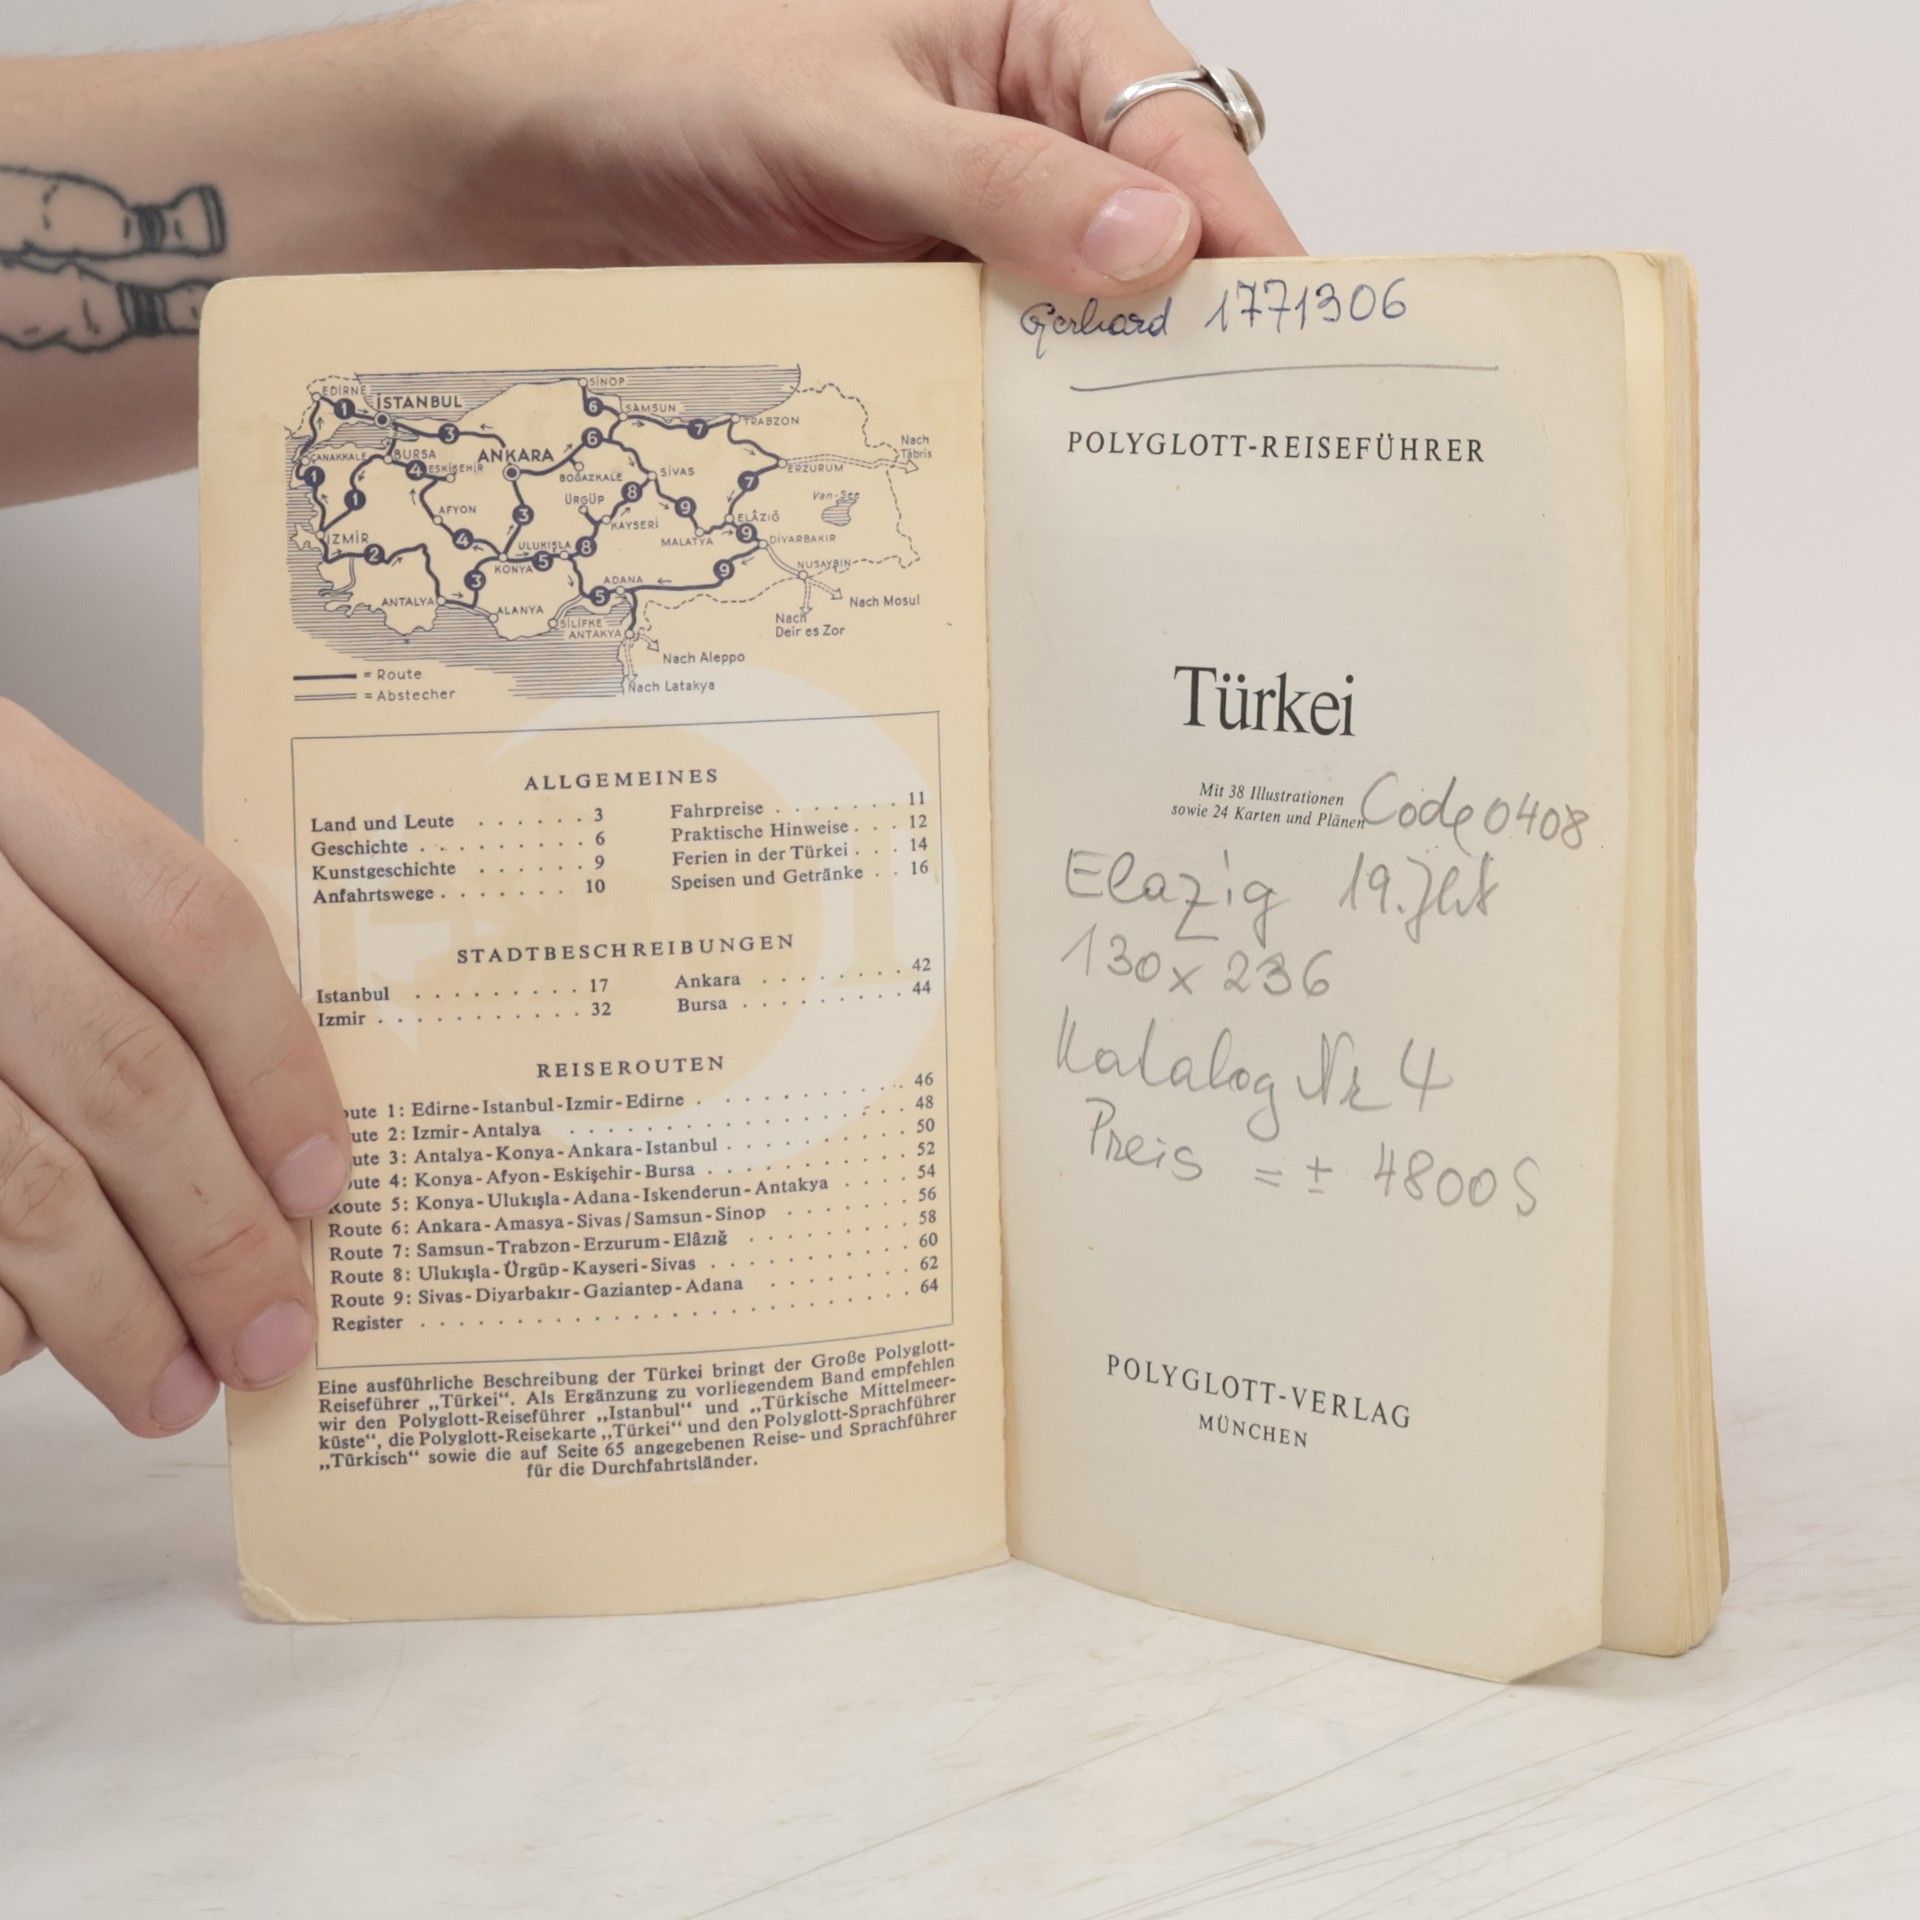 EDİRNE
İSTANBUL
SİNOP
SAMSUN
TRABZON
ÇANAKKALE
BURSA
ESKİŞEHİR
ANKARA
BOĞAZKALE
SİVAS
ERZURUM
Nach
Täbris
ÜRGÜP
Van-See
AFYON
KAYSERİ
ELÂZIĞ
İZMİR
ULUKIŞLA
MALATYA
DİYARBAKIR
KONYA
NUSAYBİN
ADANA
ANTALYA
ALANYA
SİLİFKE
ANTAKYA
Nach Mosul
Nach
Deir es Zor
Nach Aleppo
Nach Latakya
= Route
= Abstecher
ALLGEMEINES
Land und Leute . . . . . . 3
Geschichte . . . . . . . . . 6
Kunstgeschichte . . . . . . 9
Anfahrtswege . . . . . . . 10
Fahrpreise . . . . . . . 11
Praktische Hinweise . . . 12
Ferien in der Türkei . . . 14
Speisen und Getränke . . 16
STADTBESCHREIBUNGEN
Istanbul . . . . . . . . . 17
Izmir . . . . . . . . . . . 32
Ankara . . . . . . . . 42
Bursa . . . . . . . . . 44
REISEROUTEN
oute 1: Edirne-Istanbul-Izmir-Edirne . . . . . . . . . 46
ute 2: Izmir-Antalya . . . . . . . . . . . . . . . 48
ute 3: Antalya-Konya-Ankara-Istanbul . . . . . . . . 50
oute 4: Konya-Afyon-Eskişehir-Bursa . . . . . . . . . 52
Route 5: Konya-Ulukışla-Adana-Iskenderun-Antakya . . . . 54
Route 6: Ankara-Amasya-Sivas/Samsun-Sinop . . . . . . 56
Route 7: Samsun-Trabzon-Erzurum-Elâzığ . . . . . . . 58
Route 8: Ulukışla-Ürgüp-Kayseri-Sivas . . . . . . . . . 60
Route 9: Sivas-Diyarbakır-Gaziantep-Adana . . . . . . 62
Register . . . . . . . . . . . . . . . . . . . . 64
Eine ausführliche Beschreibung der Türkei bringt der Große Polyglott-
Reiseführer „Türkei“. Als Ergänzung zu vorliegendem Band empfehlen
wir den Polyglott-Reiseführer „Istanbul“ und „Türkische Mittelmeer-
küste“, die Polyglott-Reisekarte „Türkei“ und den Polyglott-Sprachführer
„Türkisch“ sowie die auf Seite 65 angegebenen Reise- und Sprachführer
für die Durchfahrtsländer.
Gerhard 1771306
POLYGLOTT-REISEFÜHRER
Türkei
Mit 38 Illustrationen
sowie 24 Karten und Plänen
Code 0408
Elazig 19. Jht
130 x 236
Katalog Nr 4
Preis = ± 4800 S
POLYGLOTT-VERLAG
MÜNCHEN